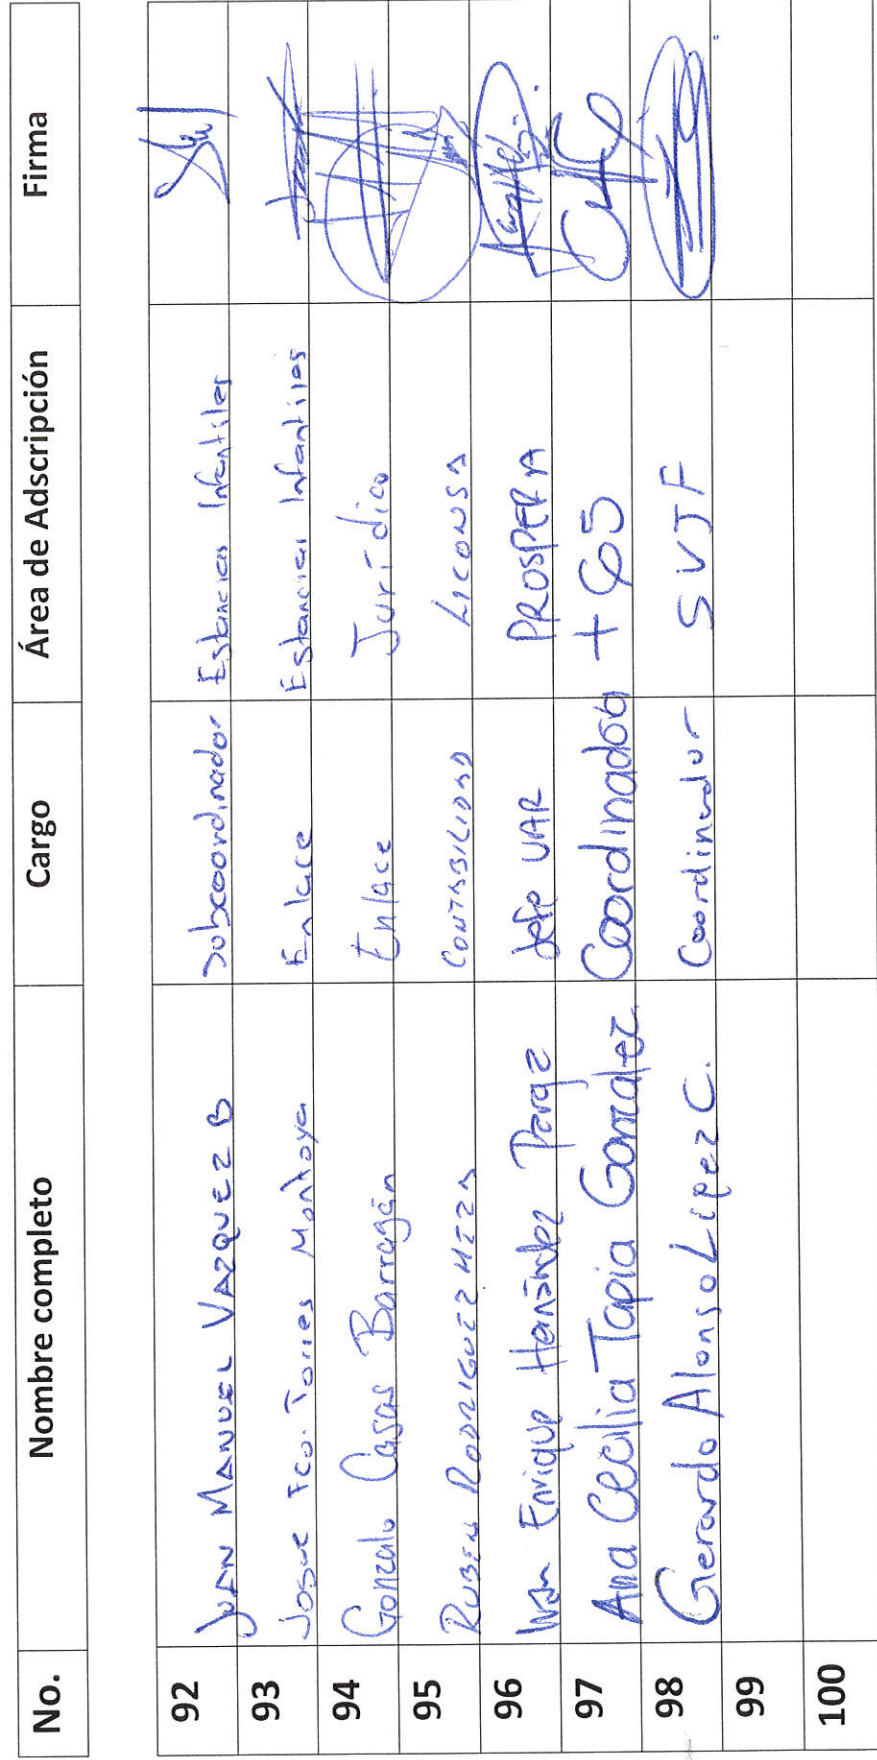 No. Nombre completo Cargo Área de Adscripción Firma
92 JUAN MANUEL VAZQUEZ B Subcoordinador Estancias Infantiles
93 Josue Fco. Torres Montoya Enlace Estancias Infantiles
94 Gonzalo Casas Barragán Enlace Jurídico
95 RUBEN RODRIGUEZ MEZA CONTABILIDAD LICONSA
96 Enrique Hernández Jefe UAR PROSPERA
97 Ana Cecilia Tapia Gonzalez Coordinadora +65
98 Gerardo Alonso López C. Coordinador SVJF
99
100